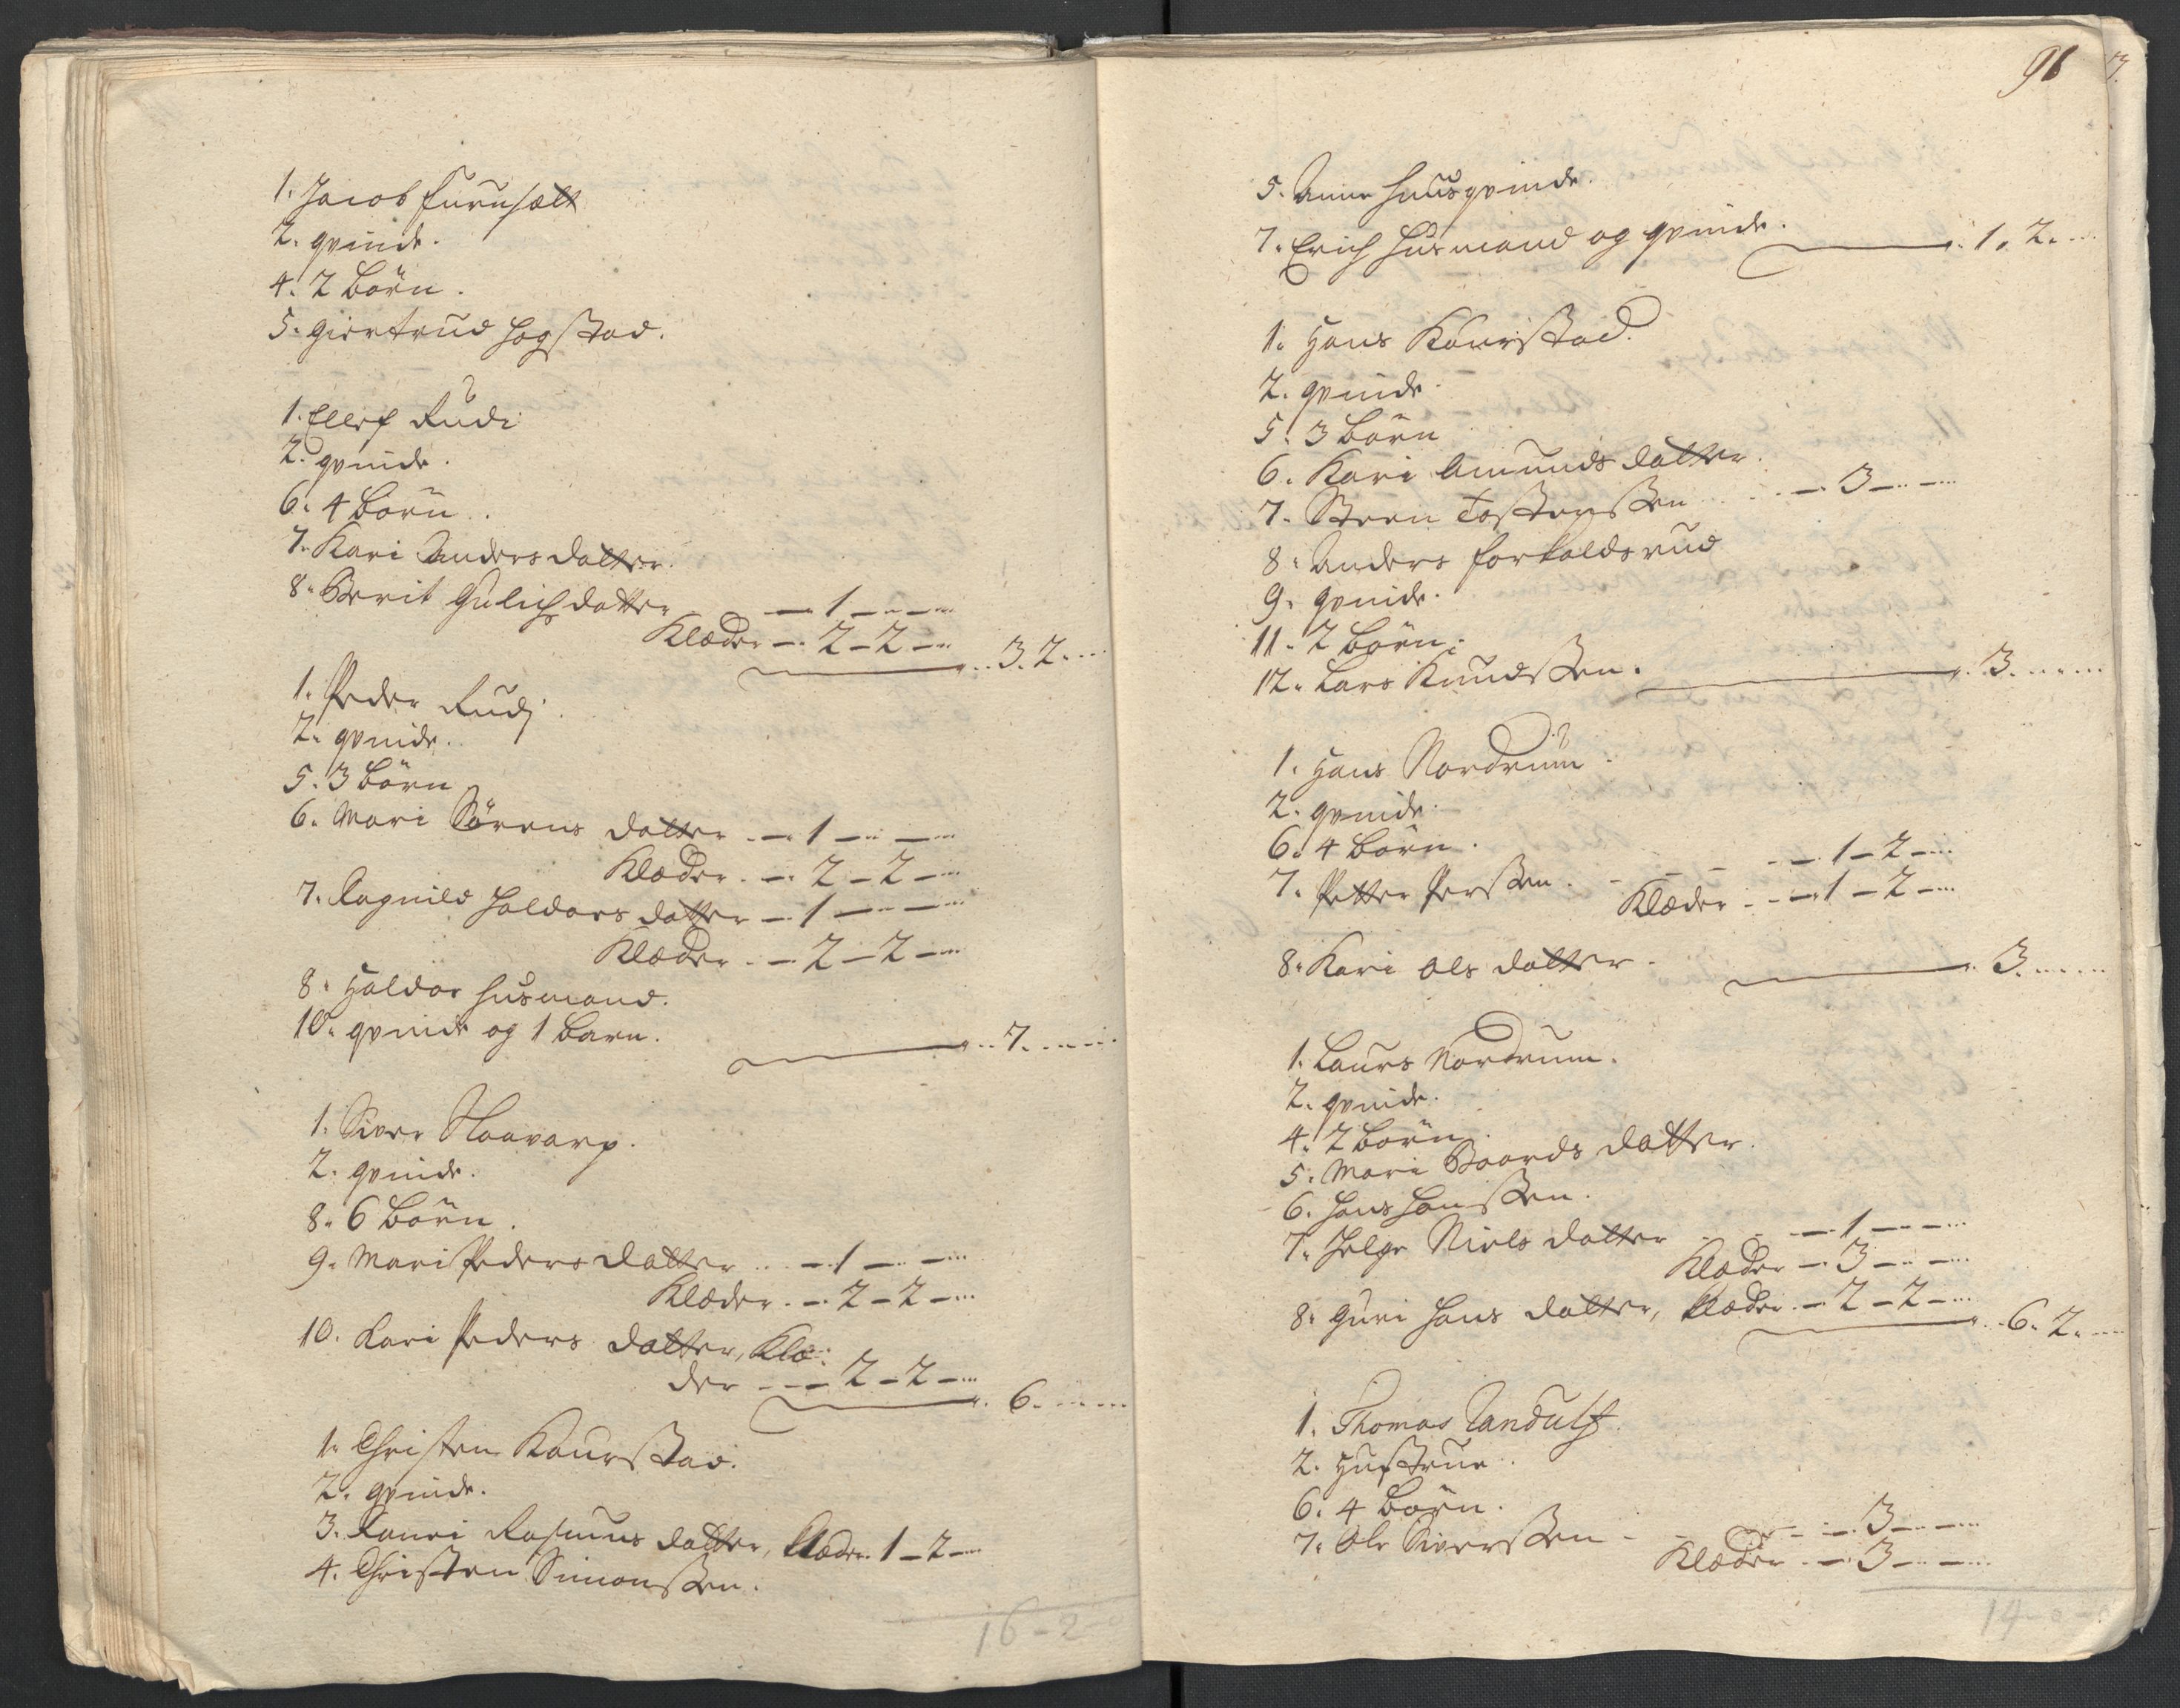 1. Jacob Furuset
2. qvinde.
4. 2 börn.
5. Giertrud Hogstad.
1. Ellef Rudi
2. qvinde.
6. 4 börn.
7. Kari Andersdatter.
8. Berit Gulichdatter - 1 - - -
Klæder - 2 - 2 -
3. 2. - -
1. Peder Rudj.
2. qvinde.
5. 3 börn
6. Mari Sörens datter - 1 - -
Klæder - 2 - 2 -
7. Ragnild Haldors datter - 1 - -
Klæder - 2 - 2 -
8. Haldor husmand.
10. qvinde og 1 barn.
7. - - -
1. Siver
2. qvinde.
8. 6 börn.
9. Mari Peders datter - 1 - -
Klæder - 2 - 2 -
10. Kari Peders datter, Klæ-
der - 2 - 2 -
6. - - -
1. Christen Kourstad.
2. qvinde.
3. Ranni Rasmus datter, Klæder 1 - 2 -
4. Christen Simonsen.
16 - 2 - 0
98
5. Anne huusqvinde.
7. Erich husmand og qvinde.
1. 2. - -
1. Hans Kourstad.
2. qvinde.
5. 3 börn
6. Kari Amunds datter.
7. Steen Tostensen - 3 - -
8. Anders
9. qvinde.
11. 2 börn.
12. Lars Knudsen.
3. - - -
1. Hans Nordrum.
2. qvinde.
6. 4 börn.
7. Petter Persen - - - 1 - 2 -
Klæder - - 1 - 2 -
8. Kari Ols datter.
3. - - -
1. Laurs Nordrum.
2. qvinde.
4. 2 börn.
5. Mari Baards datter.
6. Hans Hansen.
7. Helge Niels datter - 1 - -
Klæder - 3 - -
8. Guri Hans datter, Klæder - 2 - 2 -
6. 2. - -
1. Thomas Randulf
2. Hustrue.
6. 4 börn.
7. Ole Siversen - - 3 - -
Klæder - 3 - -
14 - 0 - 0